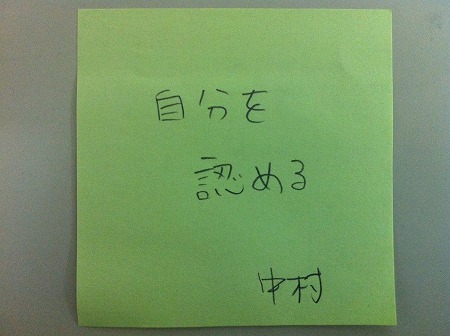 自分を
認める
中村